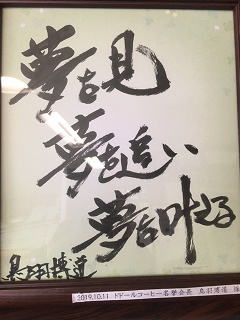 夢を見
夢を追い
夢を叶える
鳥羽博道
2019.10.11 ドトールコーヒー名誉会長 鳥羽博道 様